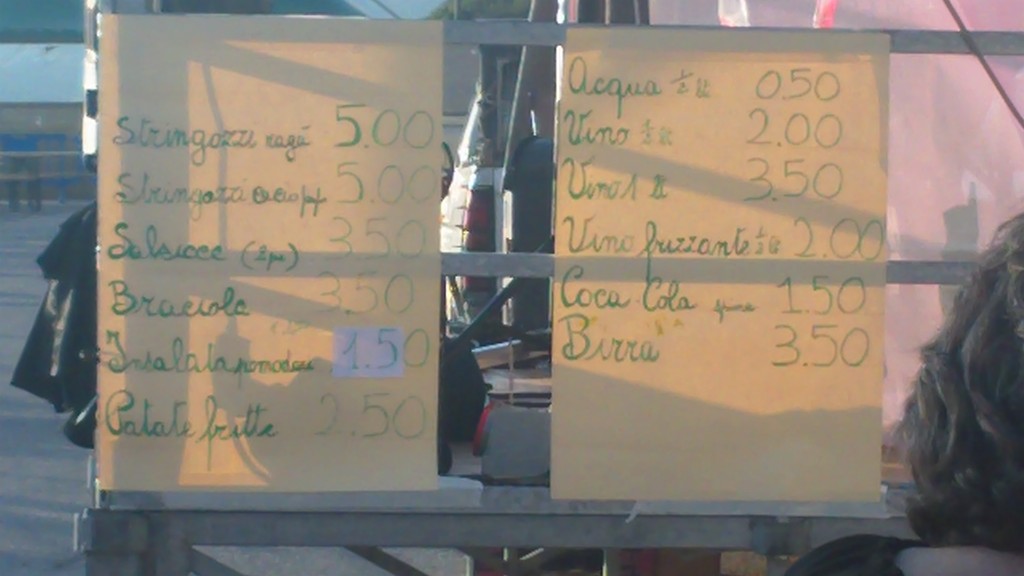 Stringozzi ragù 5.00
Stringozzi 5.00
Salsicce (2pz) 3.50
Braciole 3.50
Insalata pomodori 1.50
Patate fritte 2.50
Acqua ½ lt 0.50
Vino ½ lt 2.00
Vino 1 lt 3.50
Vino frizzante ½ lt 2.00
Coca Cola 1.50
Birra 3.50